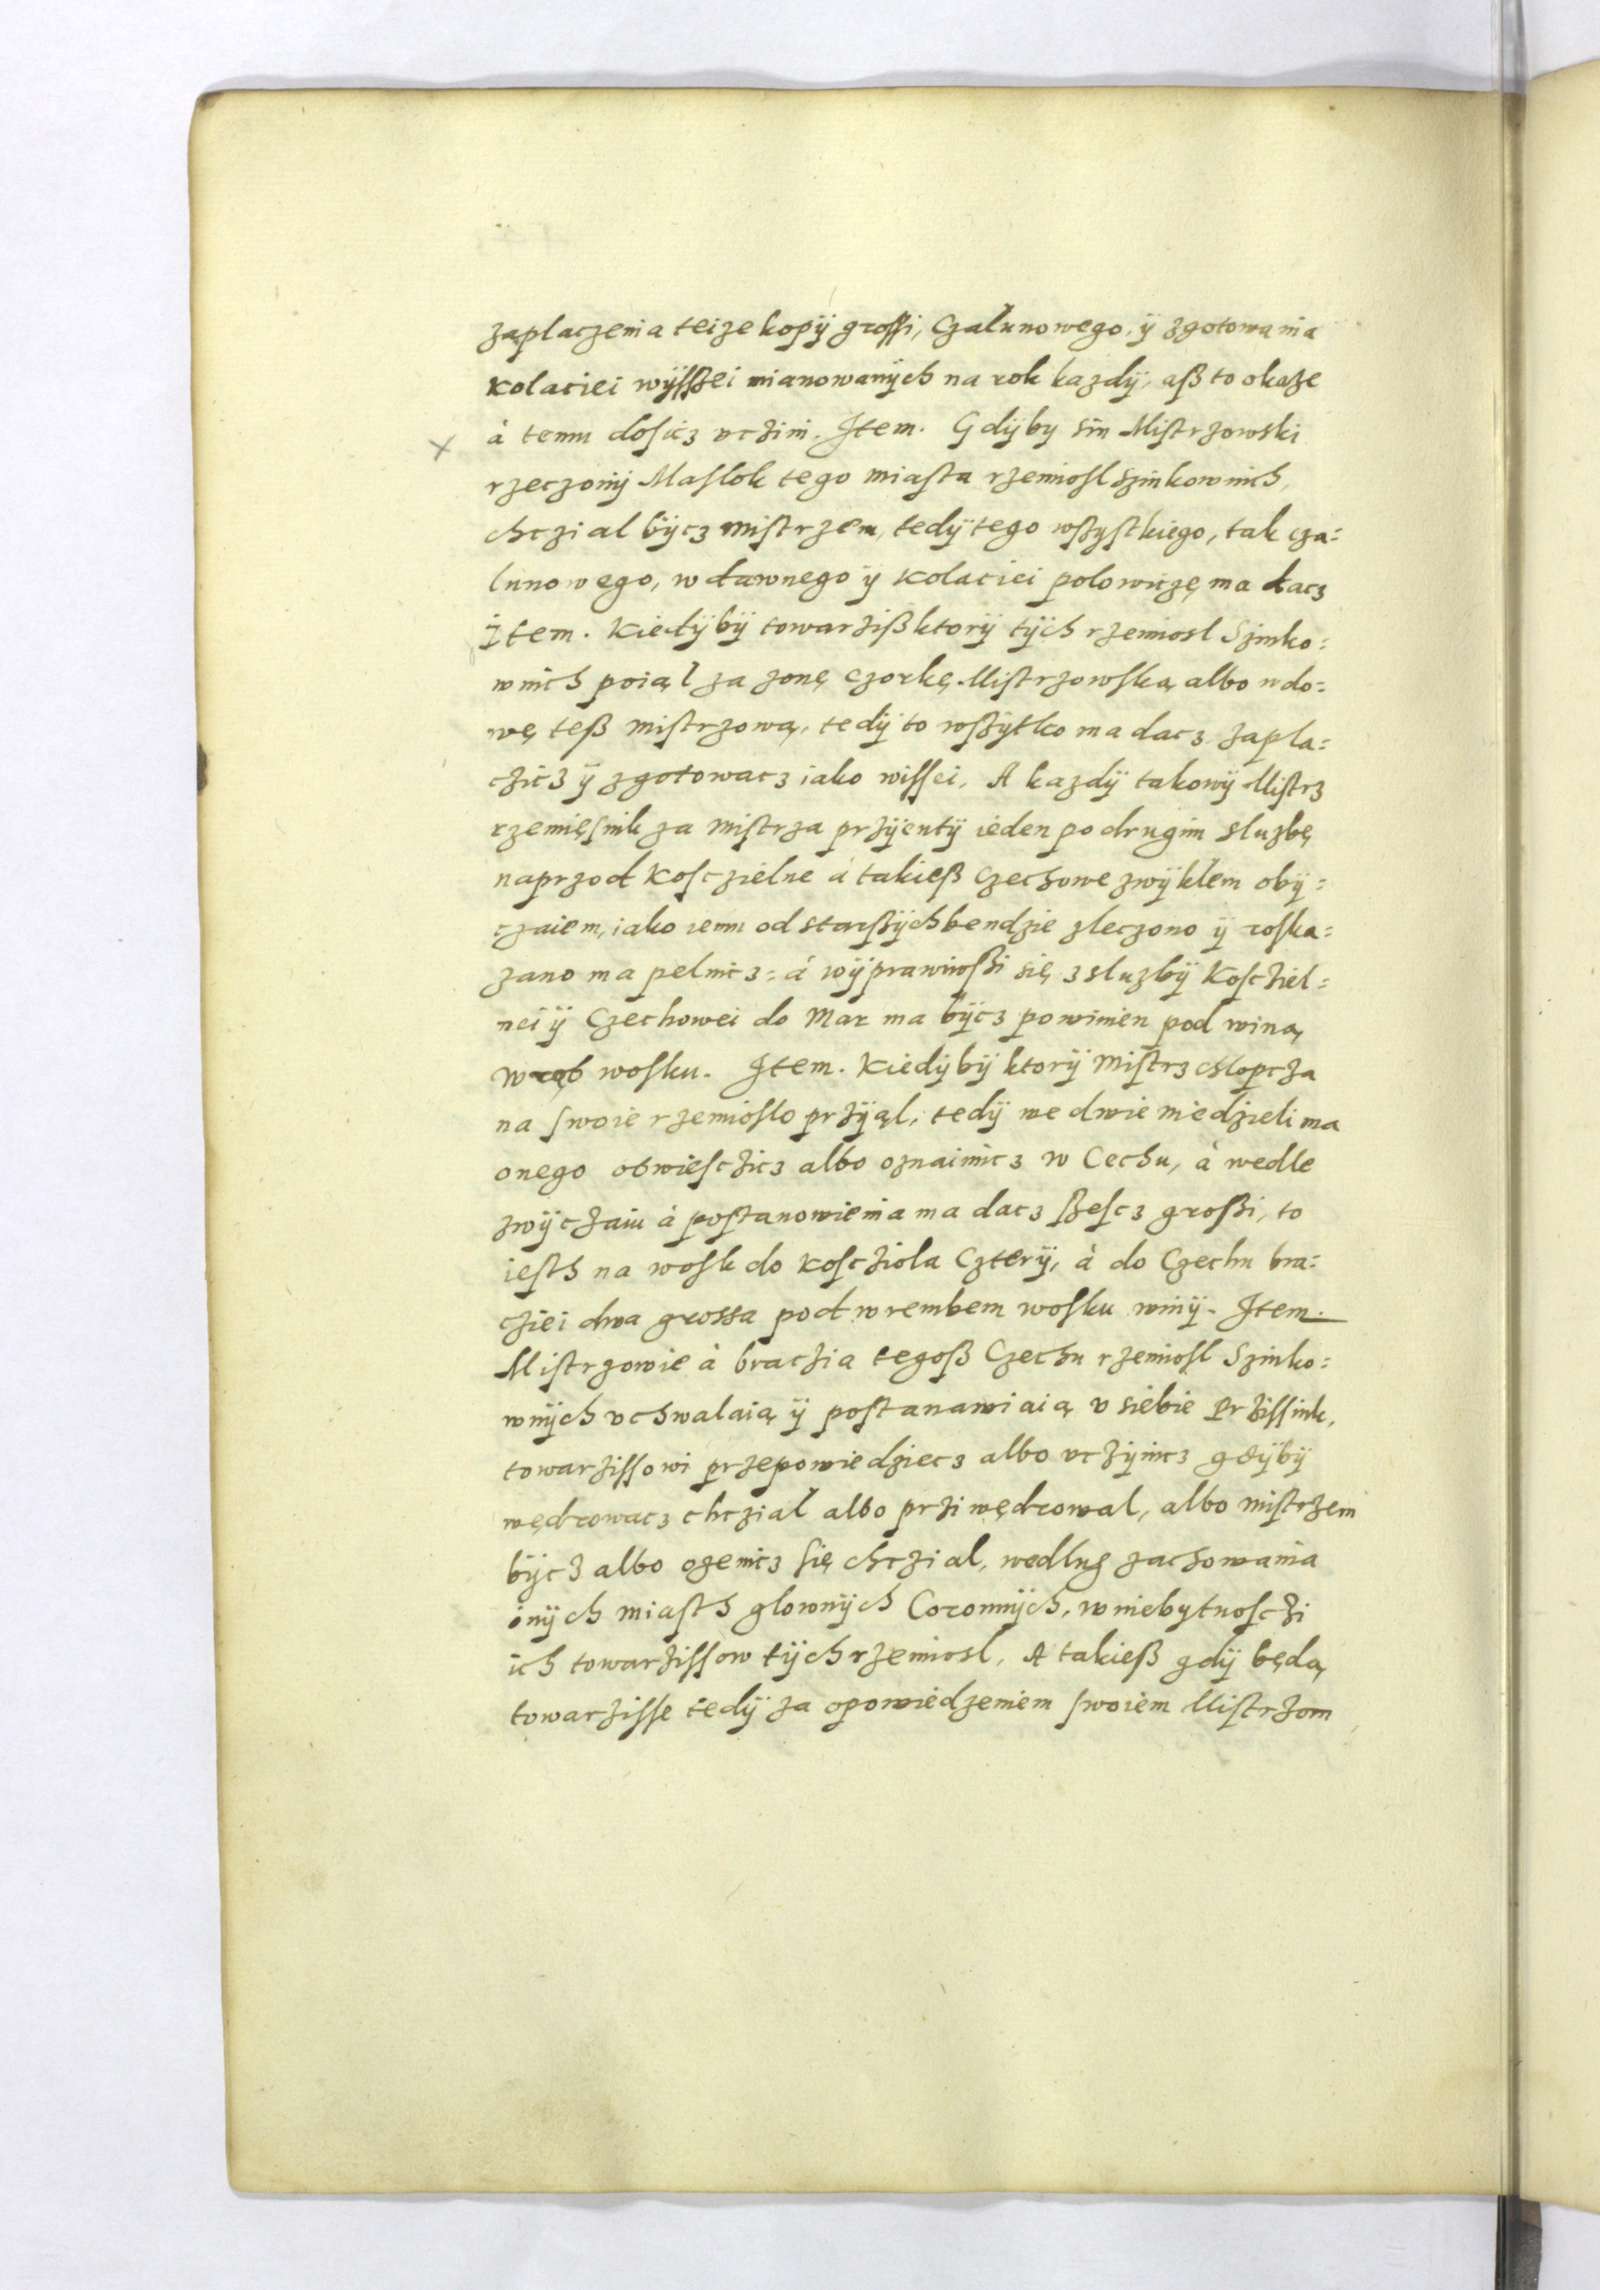 zaplaczenia teize kopÿ groſſi, Czałunowego, ÿ zgotowania
kolaciei wÿſſzei mianowanÿch na rok kazdÿ, aß to okaze
à temu doſicz vcżini. Item. Gdÿby sin Mistrzowski
rzeczonÿ Maſlok tego miaſta rzemioſl szinkownich,
chczial bÿcz miſtrzem, tedÿ tego wſzyſtkiego, tak cza=
lunowego, wdawnego ÿ kolaciei polowiczę ma dacz
Item. Kiedÿbÿ towarżiß ktorÿ tÿch rzemiosl Szinko=
wnich poiął za zonę czorkę Mistrzowſką albo wdo=
wę teß miſtrzową, tedÿ to wſzÿtko ma dacz zapla=
czicz ÿ zgotowacz iako wiſſei, A kazdÿ takowÿ Miſtrz
rzemięſnik za miſtrza przÿentÿ ieden po drugim sluzbę
naprzod Koſczielne à takieß Czechowe zwÿkłem obÿ=
czaiem, iako iemu od starßÿch bendzie zleczono ÿ roſka=
zano ma pelnicz: à wÿprawiwſzi się z sluzbÿ Koſcziel=
nei ÿ Czechowei do Mar ma bÿcz powinien pod winą
wrąb woſku. Item. Kiedÿbÿ ktorÿ miſtrz chlopcza
na ſwoie rzemioſlo przÿął, tedÿ we dwie niedzieli ma
onego obwieſczicz albo oznaimicz w Cechu, à wedle
zwÿczaiu à poſtanowienia ma dacz ſzeſcz großi, to
ieſth na woſk do koſcziola Czterÿ, à do Czechu bra=
cziei dwa grossa pod wrembem woſku winÿ. Item.
Miſtrzowie à braczia tegoß Czechu rzemioſl Szinko=
wnÿch vchwalaią ÿ poſtanawiaią v siebie Prziſſink,
towarziſſowi przepowiedziecz albo vczÿnicz gdÿbÿ
wędrowacz chczial albo prziwędrowal, albo miſtrzem
bÿcz albo ozenicz ſię chczial, wedlug zachowania
inÿch miaſth glownÿch Coronnÿch, w niebytnoſczi
ich towarziſſow tÿch rzemiosl, A takieß gdÿ będą
towarziſſe tedÿ za opowiedzeniem ſwoiem Miſtrzom